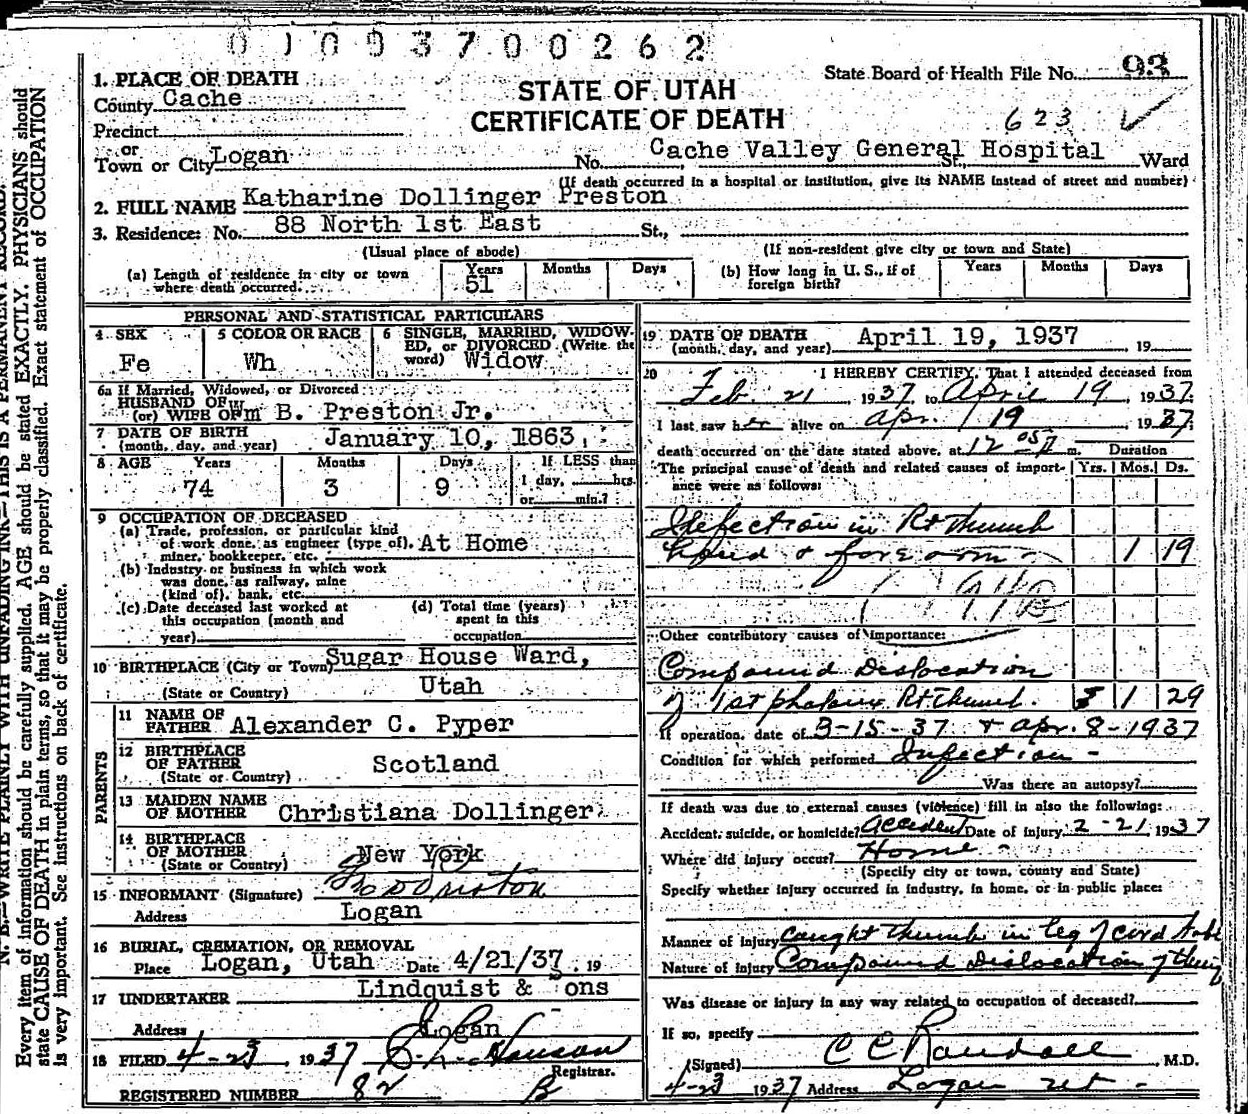 0 1 0 9 3 7 0 0 2 6 2
State Board of Health File No. 93
STATE OF UTAH
CERTIFICATE OF DEATH
623 ✓
1. PLACE OF DEATH
County Cache
Precinct
or
Town or City Logan No. Cache Valley General Hospital St., Ward
(If death occurred in a hospital or institution, give its NAME instead of street and number)
2. FULL NAME Katharine Dollinger Preston
3. Residence: No. 88 North 1st East St.,
(Usual place of abode) (If non-resident give city or town and State)
(a) Length of residence in city or town where death occurred. Years 51 Months Days
(b) How long in U. S., if of foreign birth? Years Months Days
PERSONAL AND STATISTICAL PARTICULARS
4 SEX Fe
5 COLOR OR RACE Wh
6 SINGLE, MARRIED, WIDOWED, or DIVORCED (Write the word) Widow
6a If Married, Widowed, or Divorced
HUSBAND OF
(or) WIFE OF Wm B. Preston Jr.
7 DATE OF BIRTH
(month, day, and year) January 10, 1863
8 AGE Years 74 Months 3 Days 9 If LESS than 1 day, hrs. or min.?
9 OCCUPATION OF DECEASED
(a) Trade, profession, or particular kind of work done, as engineer (type of), miner, bookkeeper, etc. At Home
(b) Industry or business in which work was done, as railway, mine (kind of), bank, etc.
(c) Date deceased last worked at this occupation (month and year)
(d) Total time (years) spent in this occupation
10 BIRTHPLACE (City or Town) Sugar House Ward,
(State or Country) Utah
PARENTS
11 NAME OF FATHER Alexander C. Pyper
12 BIRTHPLACE OF FATHER
(State or Country) Scotland
13 MAIDEN NAME OF MOTHER Christiana Dollinger
14 BIRTHPLACE OF MOTHER
(State or Country) New York
15 INFORMANT (Signature)
Address Logan
16 BURIAL, CREMATION, OR REMOVAL
Place Logan, Utah Date 4/21/37 19
17 UNDERTAKER Lindquist & ons
Address Logan
18 FILED 4-23, 1937 Hanson
Registrar.
REGISTERED NUMBER 82 B
19 DATE OF DEATH
(month, day, and year) April 19, 1937, 19
20 I HEREBY CERTIFY, That I attended deceased from
Feb. 21, 1937, to April 19, 1937.
I last saw her alive on Apr. 19 1937
death occurred on the date stated above, at 12 05 m. Duration
The principal cause of death and related causes of importance were as follows: Yrs. Mos. Ds.
Infection in Rt thumb
hand & forearm - 1 19
Other contributory causes of importance:
Compound Dislocation
of 1st phalanx Rt thumb. 1 29
If operation, date of 3-15-37 & Apr. 8-1937
Condition for which performed Infection -
Was there an autopsy?
If death was due to external causes (violence) fill in also the following:
Accident, suicide, or homicide? Accident Date of injury 2-21 1937
Where did injury occur? Home -
(Specify city or town, county and State)
Specify whether injury occurred in industry, in home, or in public place:
Manner of Injury caught thumb in leg of card table
Nature of Injury Compound Dislocation of thumb
Was disease or injury in any way related to occupation of deceased?
If so, specify
(Signed) C C Randall M.D.
4-23 1937 Address Logan Ut -
N. B.—WRITE PLAINLY WITH UNFADING INK—THIS IS A PERMANENT RECORD.
Every item of information should be carefully supplied. AGE should be stated EXACTLY. PHYSICIANS should
state CAUSE OF DEATH in plain terms, so that it may be properly classified. Exact statement of OCCUPATION
is very important. See instructions on back of certificate.